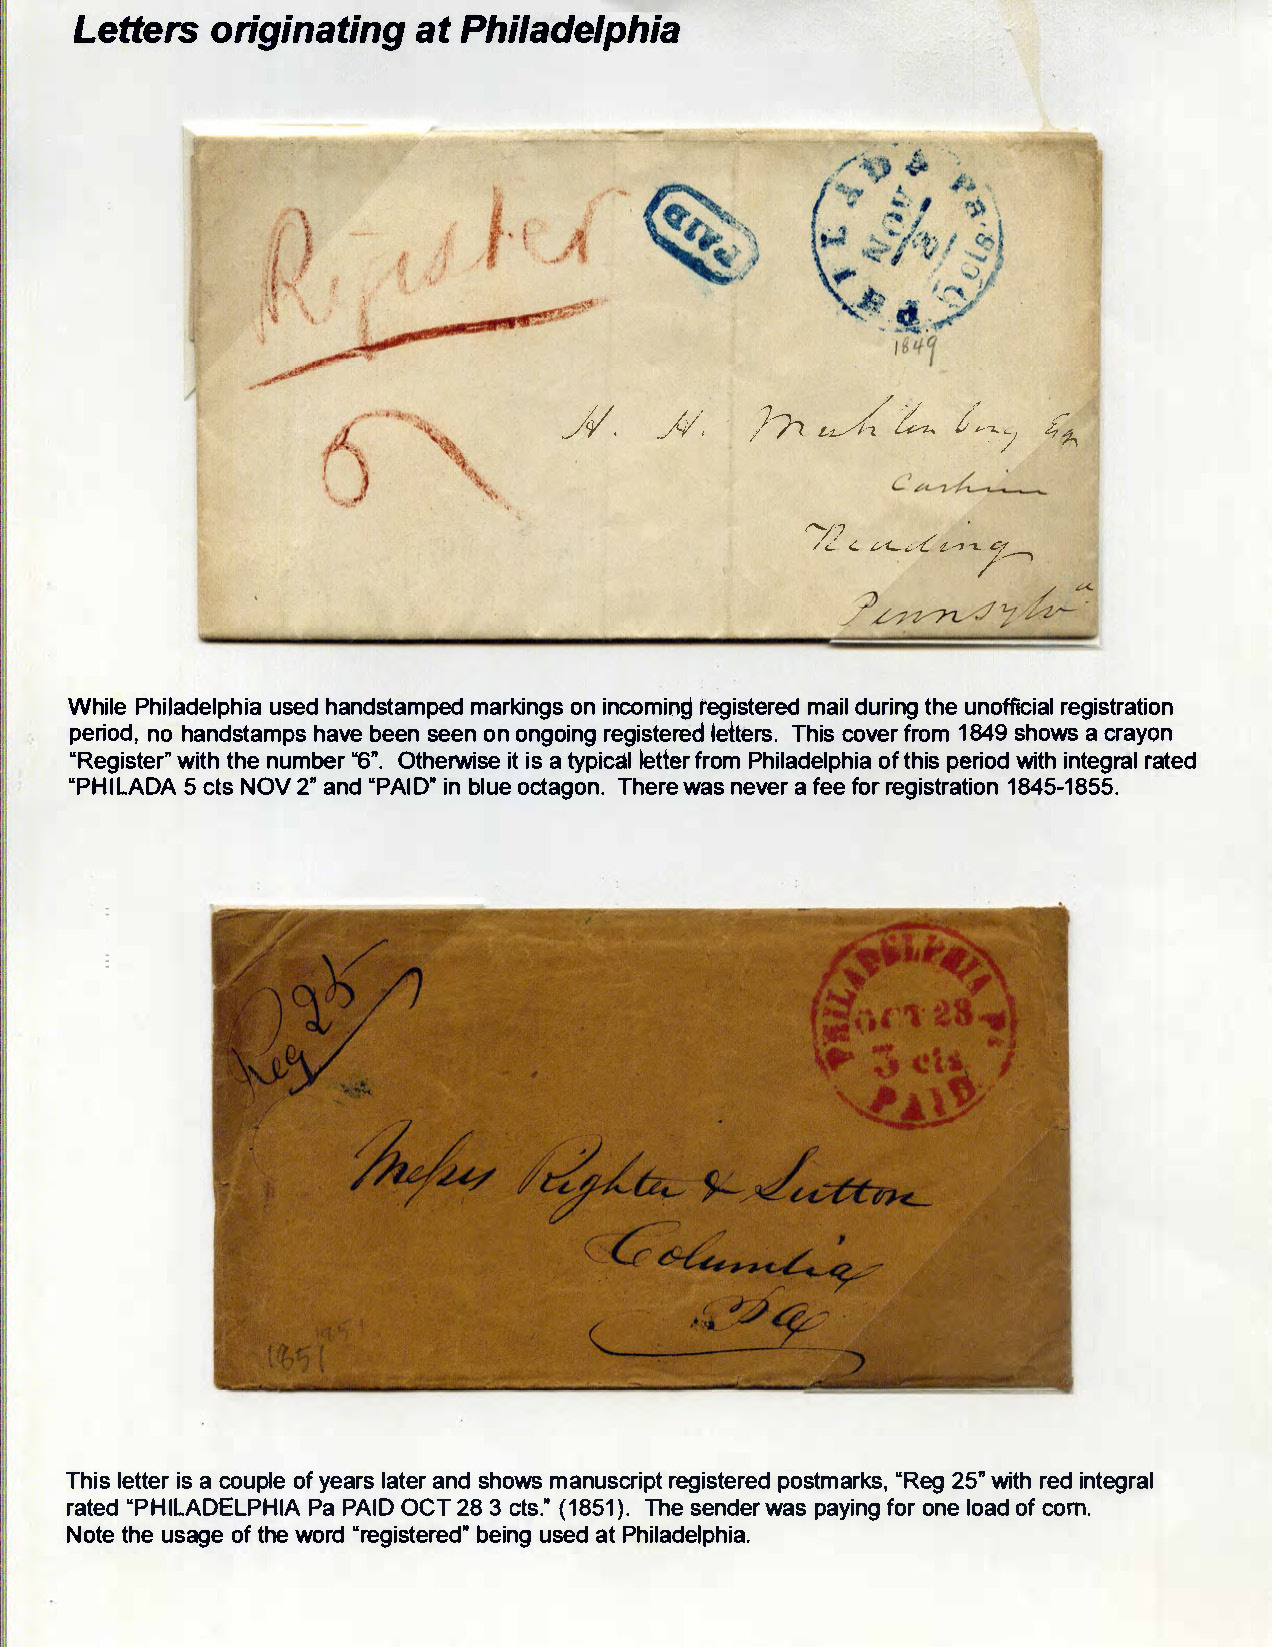 Letters originating at Philadelphia
Register
PAID
PHILADA Pa
NOV
5 cts
1849
6
H. H. Muhlenberg Esq
Cashier
Reading
Pennsylva
While Philadelphia used handstamped markings on incoming registered mail during the unofficial registration
period, no handstamps have been seen on ongoing registered letters. This cover from 1849 shows a crayon
“Register” with the number “6”. Otherwise it is a typical letter from Philadelphia of this period with integral rated
“PHILADA 5 cts NOV 2” and “PAID” in blue octagon. There was never a fee for registration 1845-1855.
Reg 25
PHILADELPHIA Pa
OCT 28
3 cts
PAID
Messrs Righter & Sutton
Columbia
Pa
1851
1851
This letter is a couple of years later and shows manuscript registered postmarks, “Reg 25” with red integral
rated “PHILADELPHIA Pa PAID OCT 28 3 cts.” (1851). The sender was paying for one load of corn.
Note the usage of the word “registered” being used at Philadelphia.